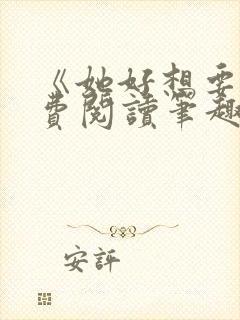 《她好想要
費閱讀筆趣
安評